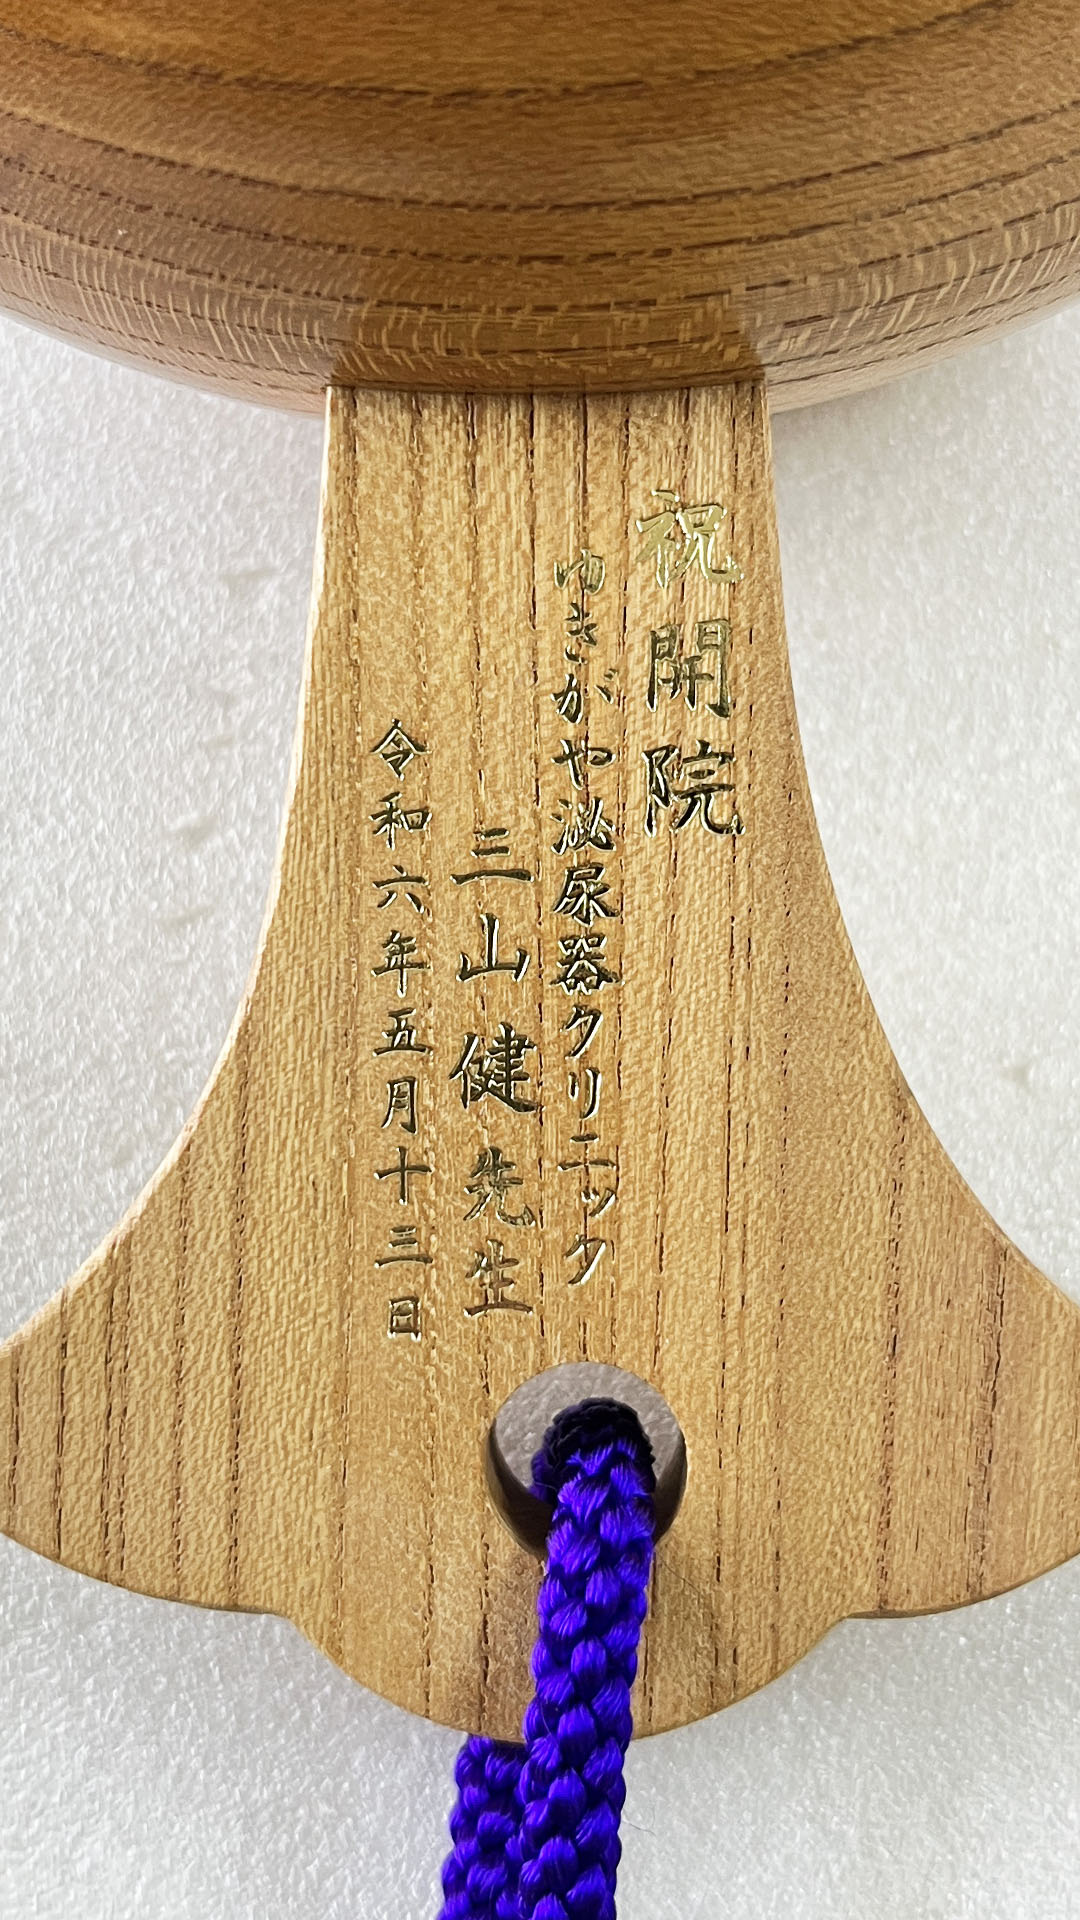 祝開院
ゆきがや泌尿器クリニック
三山健先生
令和六年五月十三日